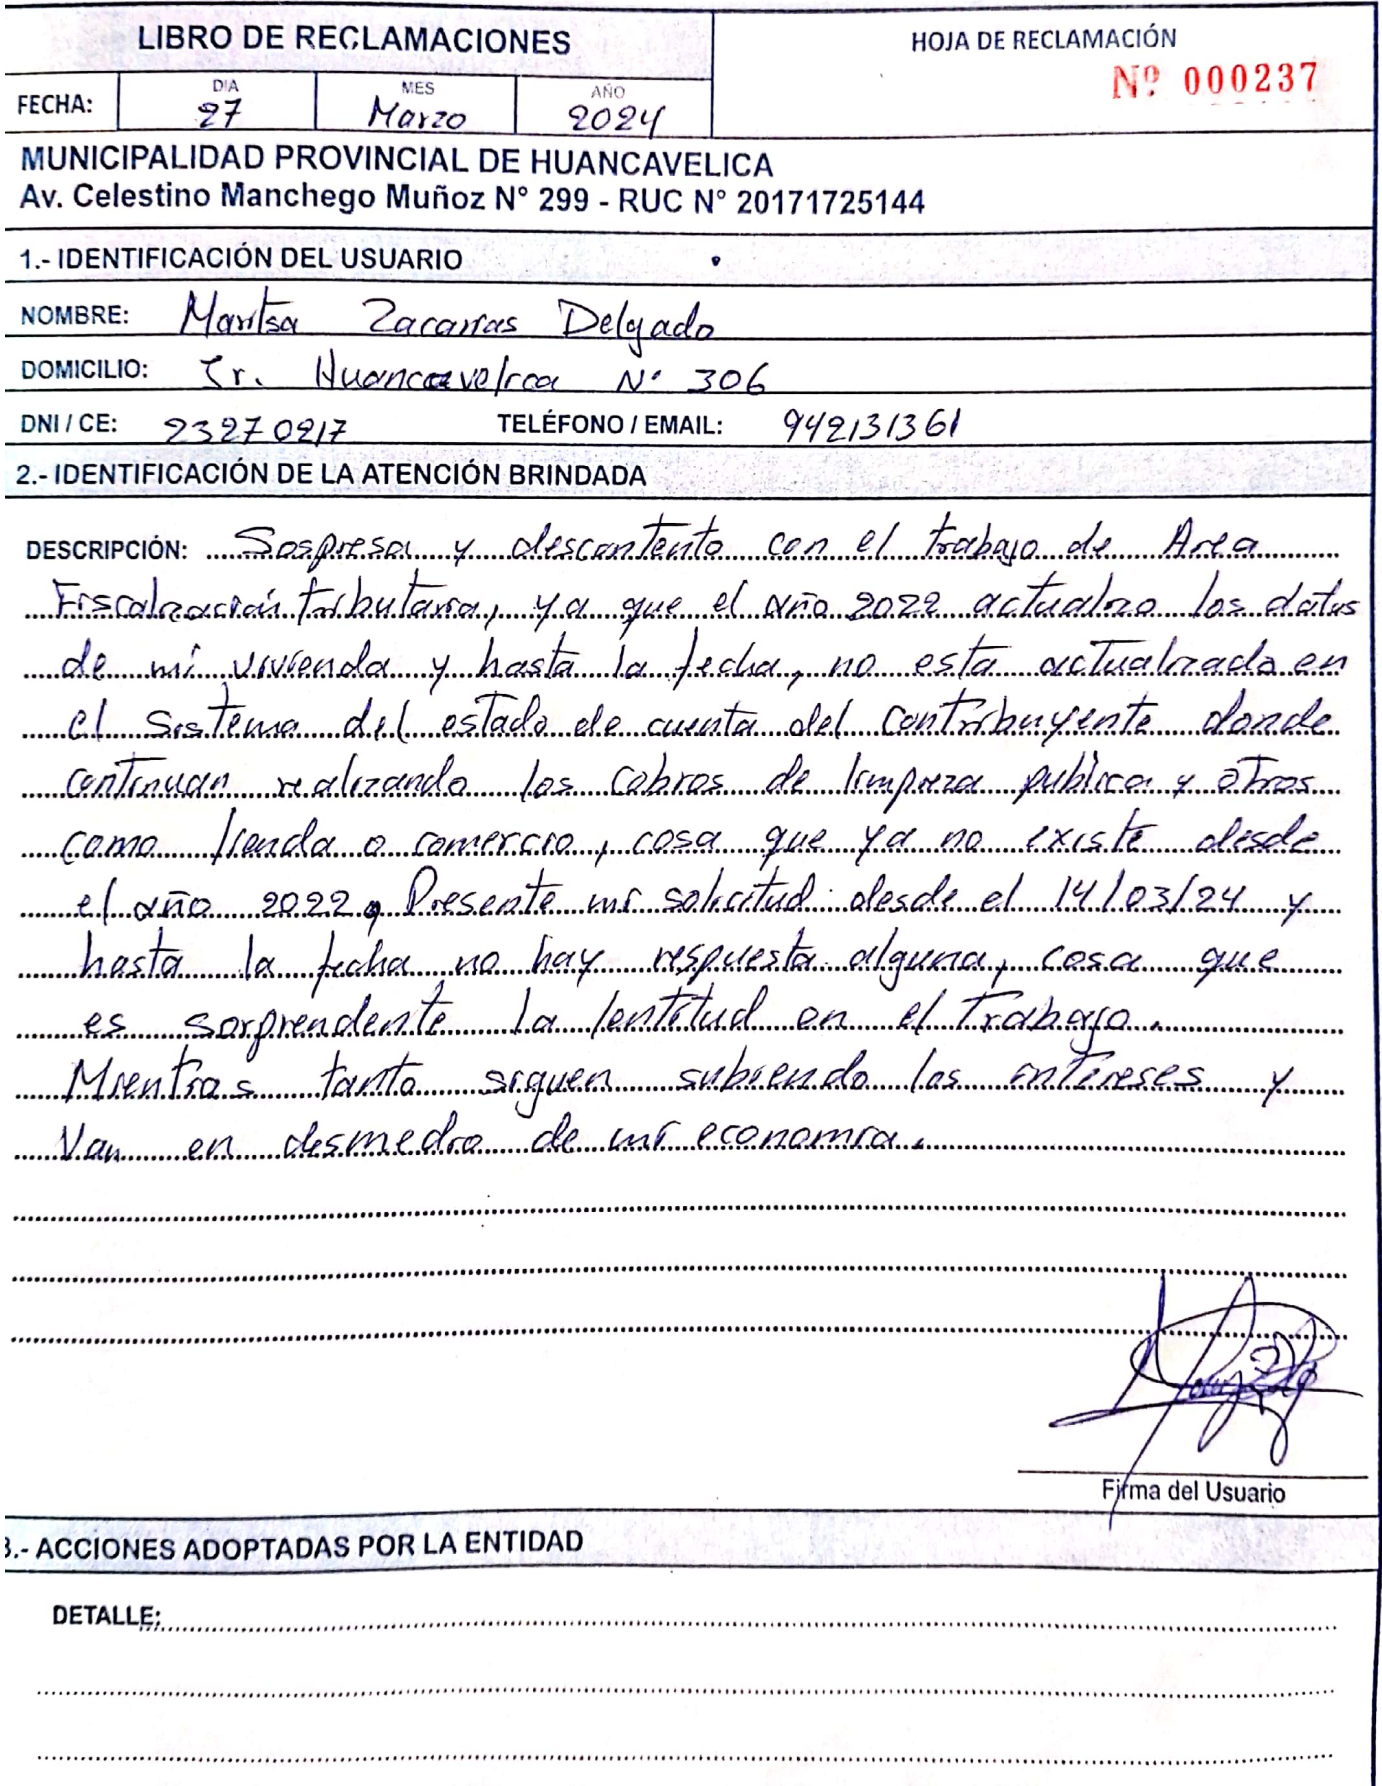 LIBRO DE RECLAMACIONES
HOJA DE RECLAMACIÓN
Nº 000237
FECHA:
DIA
27
MES
Marzo
AÑO
2024
MUNICIPALIDAD PROVINCIAL DE HUANCAVELICA
Av. Celestino Manchego Muñoz N° 299 - RUC N° 20171725144
1.- IDENTIFICACIÓN DEL USUARIO
NOMBRE: Maritsa Zacarias Delgado
DOMICILIO: Jr. Huancavelica N° 306
DNI / CE: 23270217 TELÉFONO / EMAIL: 942131361
2.- IDENTIFICACIÓN DE LA ATENCIÓN BRINDADA
DESCRIPCIÓN: Sospresa y descontento con el trabajo de Area
Fiscalización tributaria, ya que el año 2022 actualizo los datos
de mi vivienda y hasta la fecha, no esta actualizado en
el Sistema del estado de cuenta del contribuyente donde
continuan realizando los cobros de limpieza publica y otros
como tienda o comercio, cosa que ya no existe desde
el año 2022, Presente mi solicitud desde el 14/03/24 y
hasta la fecha no hay respuesta alguna, cosa que
es sorprendente la lentitud en el Trabajo.
Mientras tanto siguen subiendo los intereses y
Van en desmedro de mi economia.
Firma del Usuario
3.- ACCIONES ADOPTADAS POR LA ENTIDAD
DETALLE: